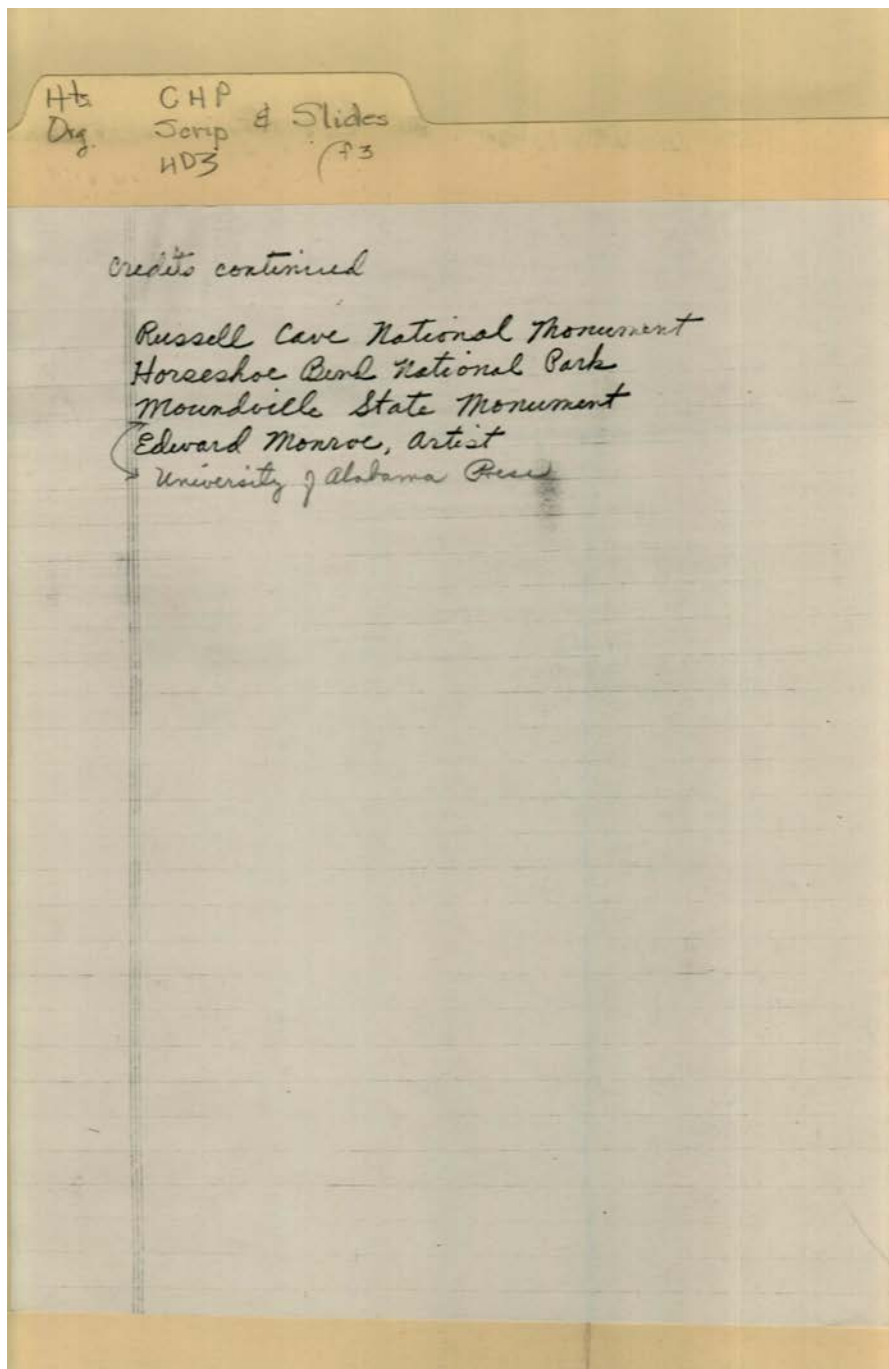 Hts. CHP
Org. Scrip & Slides
HD3 (f3
Credits continued
Russell Cave National Monument
Horseshoe Bend National Park
Moundville State Monument
Edward Monroe, Artist
University of Alabama Press